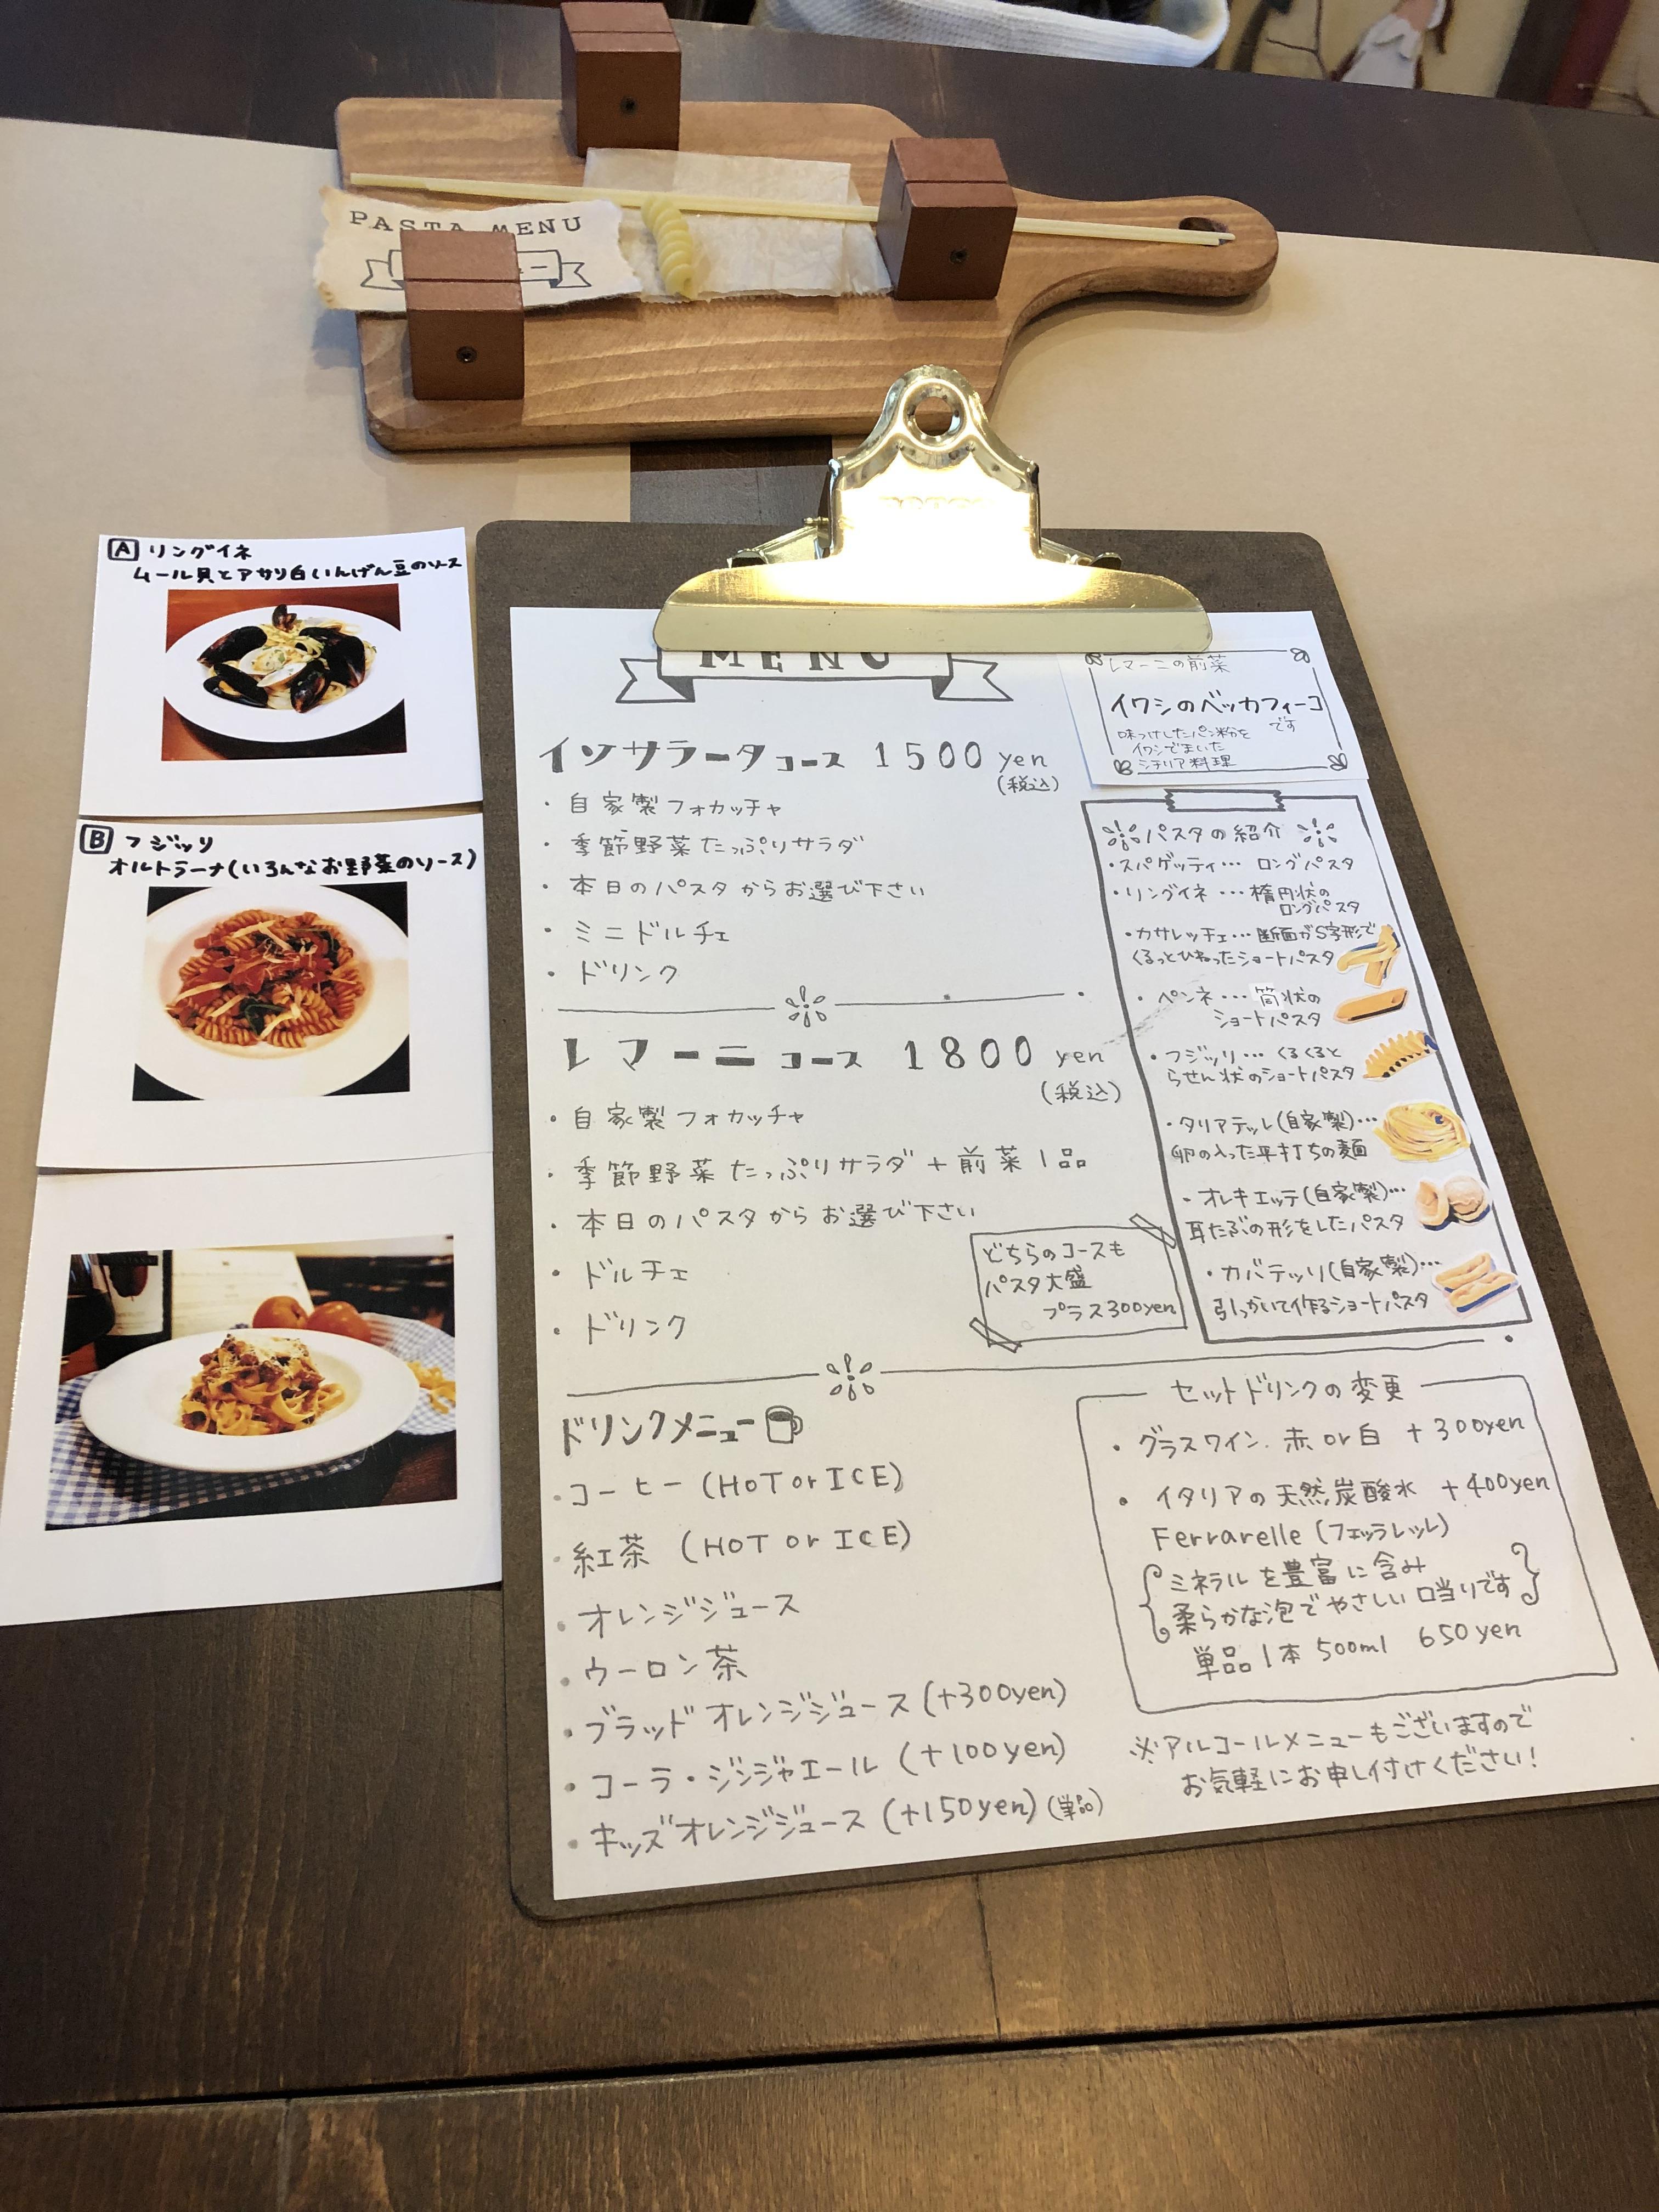 PASTA MENU
A リングイネ
ムール貝とアサリ白いんげん豆のソース
B フジッリ
オルトラーナ(いろんなお野菜のソース)
MENU
イソサラータコース 1500 yen
(税込)
・自家製フォカッチャ
・季節野菜たっぷりサラダ
・本日のパスタからお選び下さい
・ミニドルチェ
・ドリンク
レマーニコース 1800 yen
(税込)
・自家製フォカッチャ
・季節野菜たっぷりサラダ+前菜1品
・本日のパスタからお選び下さい
・ドルチェ
・ドリンク
どちらのコースも
パスタ大盛
プラス300yen
レマーニの前菜
イワシのベッカフィーコ
です
味つけしたパン粉を
イワシでまいた
シチリア料理
パスタの紹介
・スパゲッティ… ロングパスタ
・リングイネ … 楕円状の
ロングパスタ
・カサレッチェ… 断面がS字形で
くるっとひねったショートパスタ
・ペンネ… 筒状の
ショートパスタ
・フジッリ… くるくると
らせん状のショートパスタ
・タリアテッレ(自家製)…
卵の入った平打ちの麺
・オレキエッテ(自家製)…
耳たぶの形をしたパスタ
・カバテッリ(自家製)…
引っかいて作るショートパスタ
ドリンクメニュー
・コーヒー (HOT or ICE)
・紅茶 (HOT or ICE)
・オレンジジュース
・ウーロン茶
・ブラッドオレンジジュース (+300yen)
・コーラ・ジンジャエール (+100yen)
・キッズオレンジジュース (+150yen) (単品)
セットドリンクの変更
・グラスワイン. 赤 or 白 +300yen
・イタリアの天然炭酸水 +400yen
Ferrarelle (フェッラレッレ)
{ミネラルを豊富に含み
柔らかな泡でやさしい口当りです}
単品1本 500ml 650yen
※アルコールメニューもございますので
お気軽にお申し付けください!